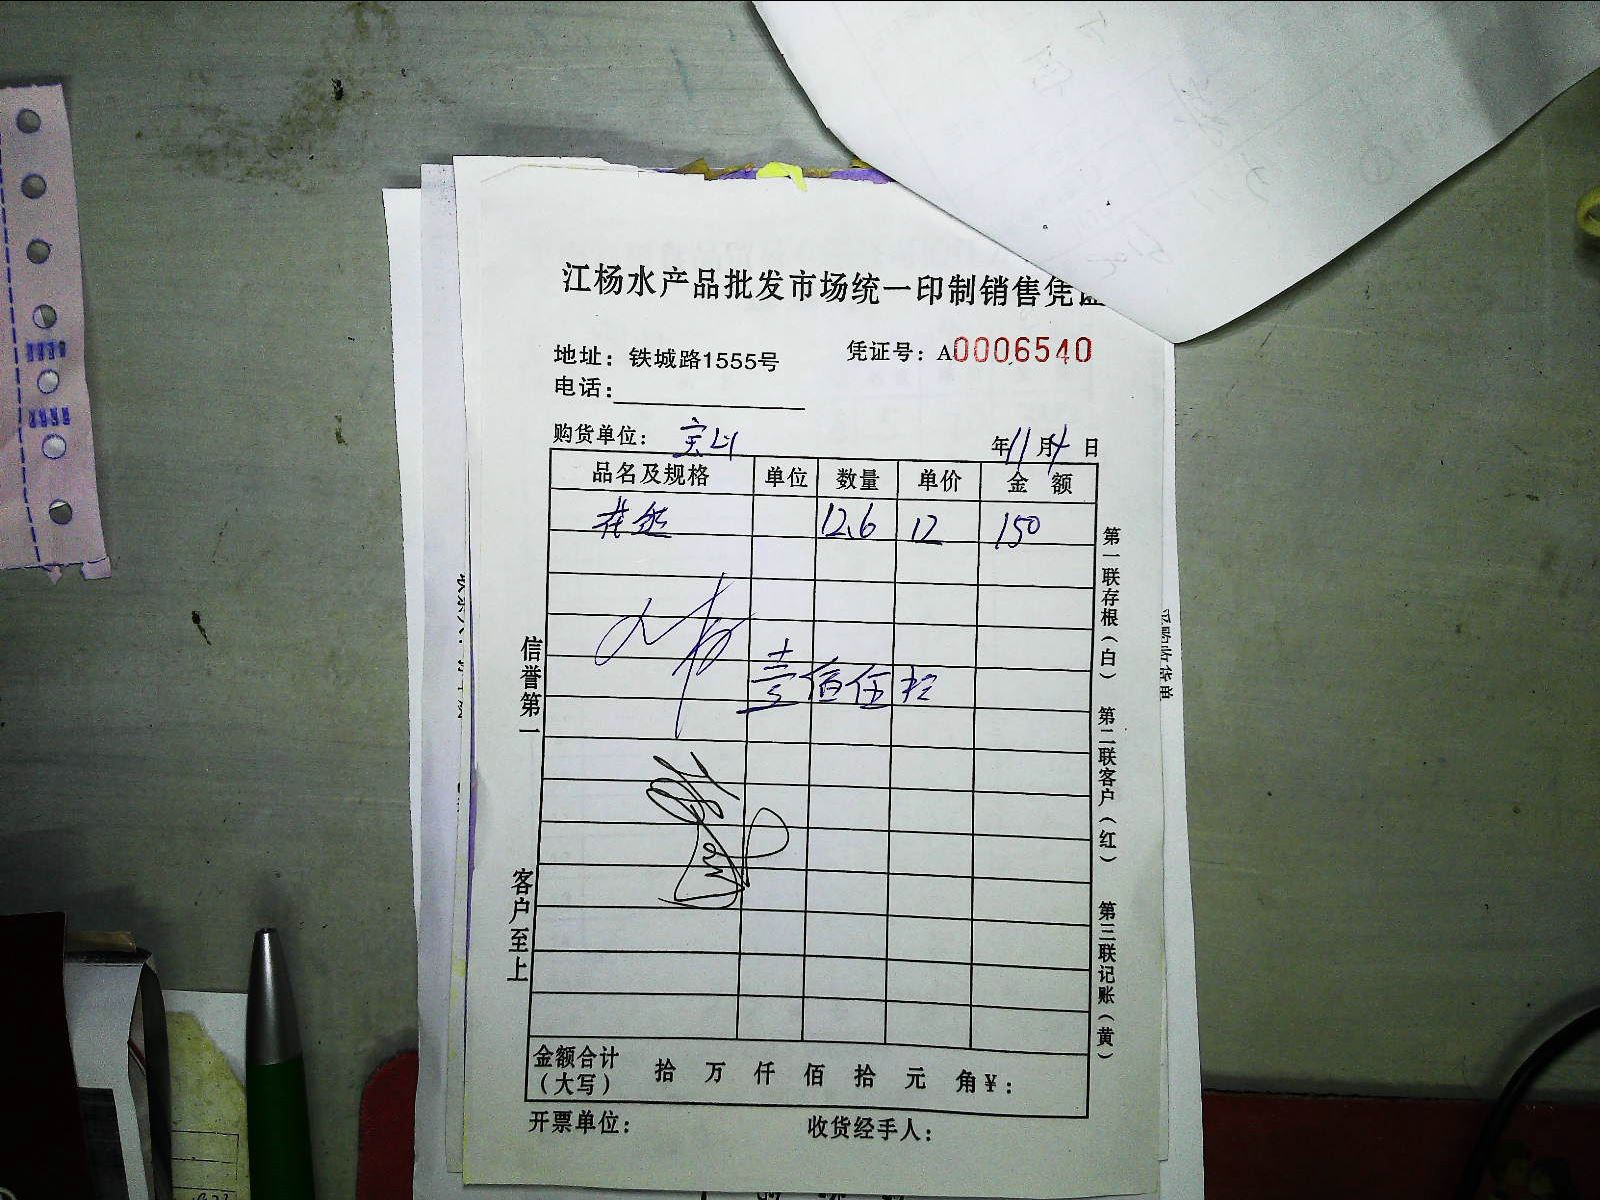 江杨水产品批发市场统一印制销售凭证
地址：铁城路1555号
凭证号：A0006540
电话：
购货单位：宝山
年11月4日
品名及规格 单位 数量 单价 金额
花鲢 12.6 12 150
壹佰伍拾
信誉第一
客户至上
第一联存根（白）
第二联客户（红）
第三联记账（黄）
金额合计（大写） 拾 万 仟 佰 拾 元 角 ¥：
开票单位：
收货经手人：